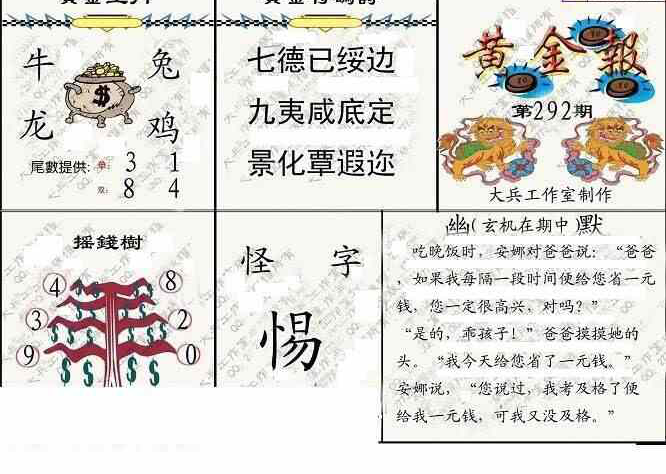 牛 兔
龙 鸡
尾數提供: 单: 3 1
双: 8 4
七德已绥边
九夷咸底定
景化覃遐迩
黄金報
第292期
大兵工作室制作
摇錢樹
4 8
3 2
9 0
怪 字
惕
幽(玄机在期中)默
吃晚饭时，安娜对爸爸说：“爸爸
，如果我每隔一段时间便给您省一元
钱，您一定很高兴，对吗？”
“是的，乖孩子！”爸爸摸摸她的
头。“我今天给您省了一元钱。”
安娜说，“您说过，我考及格了便
给我一元钱，可我又没及格。”